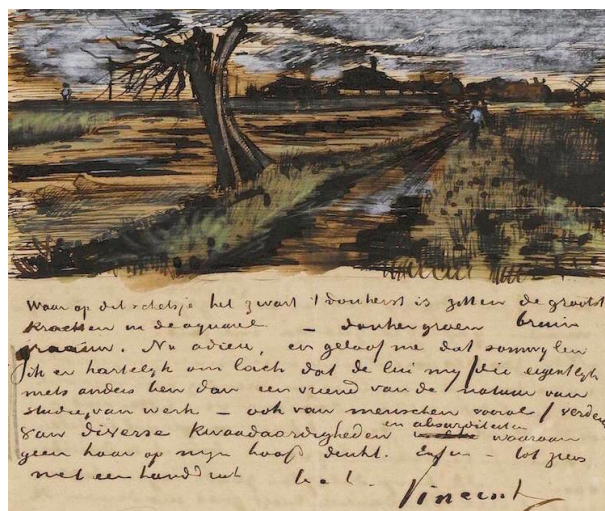 Waar op dit schetsje het zwart 't donkerst is zitten de grootste
krachten in de aquarel — donkergroen bruin
graauw. Nu adieu, en geloof me dat somwijlen
ik er hartelijk om lach dat de lui mij /die eigentlijk
niets anders ben dan een vriend van de natuur van
studie, van werk — ook van menschen vooral/ verden
van diverse kwaadaardigheden en absurditeiten waaraan
geen haar op mijn hoofd denkt. Enfin — tot ziens
met een handdruk
Vincent